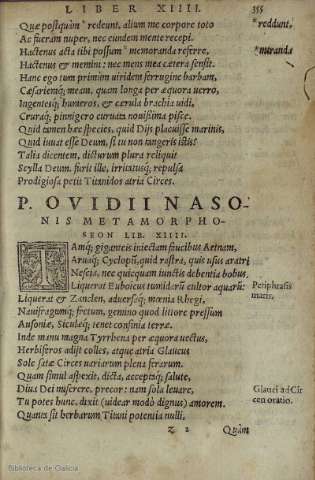 LIBER XIIII. 355
Quæ postquàm * redeunt, alium me corpore toto * reddunt,
Ac fueram nuper, nec eundem mente recepi.
Hactenus acta tibi possum * memoranda referre, * miranda
Hactenus & memini: nec mens mea cætera sensit.
Hanc ego tum primùm viridem ferrugine barbam,
Cæsariemq; meam, quam longa per æquora verro,
Ingentesq; humeros, & cærula brachia vidi,
Cruraq; pinnigero curuata nouissima pisce.
Quid tamen hæc species, quid Dijs placuisse marinis,
Quid iuuat esse Deum, si tu non tangeris istis?
Talia dicentem, dicturum plura reliquit
Scylla Deum. furit ille, irritatusq; repulsa
Prodigiosa petit Titanidos atria Circes.
P. OVIDII NASO-
NIS METAMORPHO-
SEON LIB. XIIII.
Iamq; giganteis iniectam faucibus Aetnam,
Aruaq; Cyclopũ, quid rastra, quis usus aratri
Nescia, nec quicquam iunctis debentia bobus,
Liquerat Euboicus tumidarũ cultor aquarũ: Periphrasis
Liquerat & Zanclen, aduersaq; mœnia Rhegi, maris,
Nauifragumq; fretum, gemino quod littore pressum
Ausoniæ, Siculæq; tenet confinia terræ.
Inde manu magna Tyrrhena per æquora vectus,
Herbiferos adijt colles, atque atria Glaucus
Sole satæ Circes variarum plena ferarum.
Quam simul aspexit, dicta, acceptaq; salute,
Diua Dei miserere, precor: nam sola leuare, Glauci ad Cir
Tu potes hunc, dixit (videar modò dignus) amorem. cen oratio.
Quanta sit herbarum Titani potentia nulli,
Z 2 Quàm
Biblioteca de Galicia